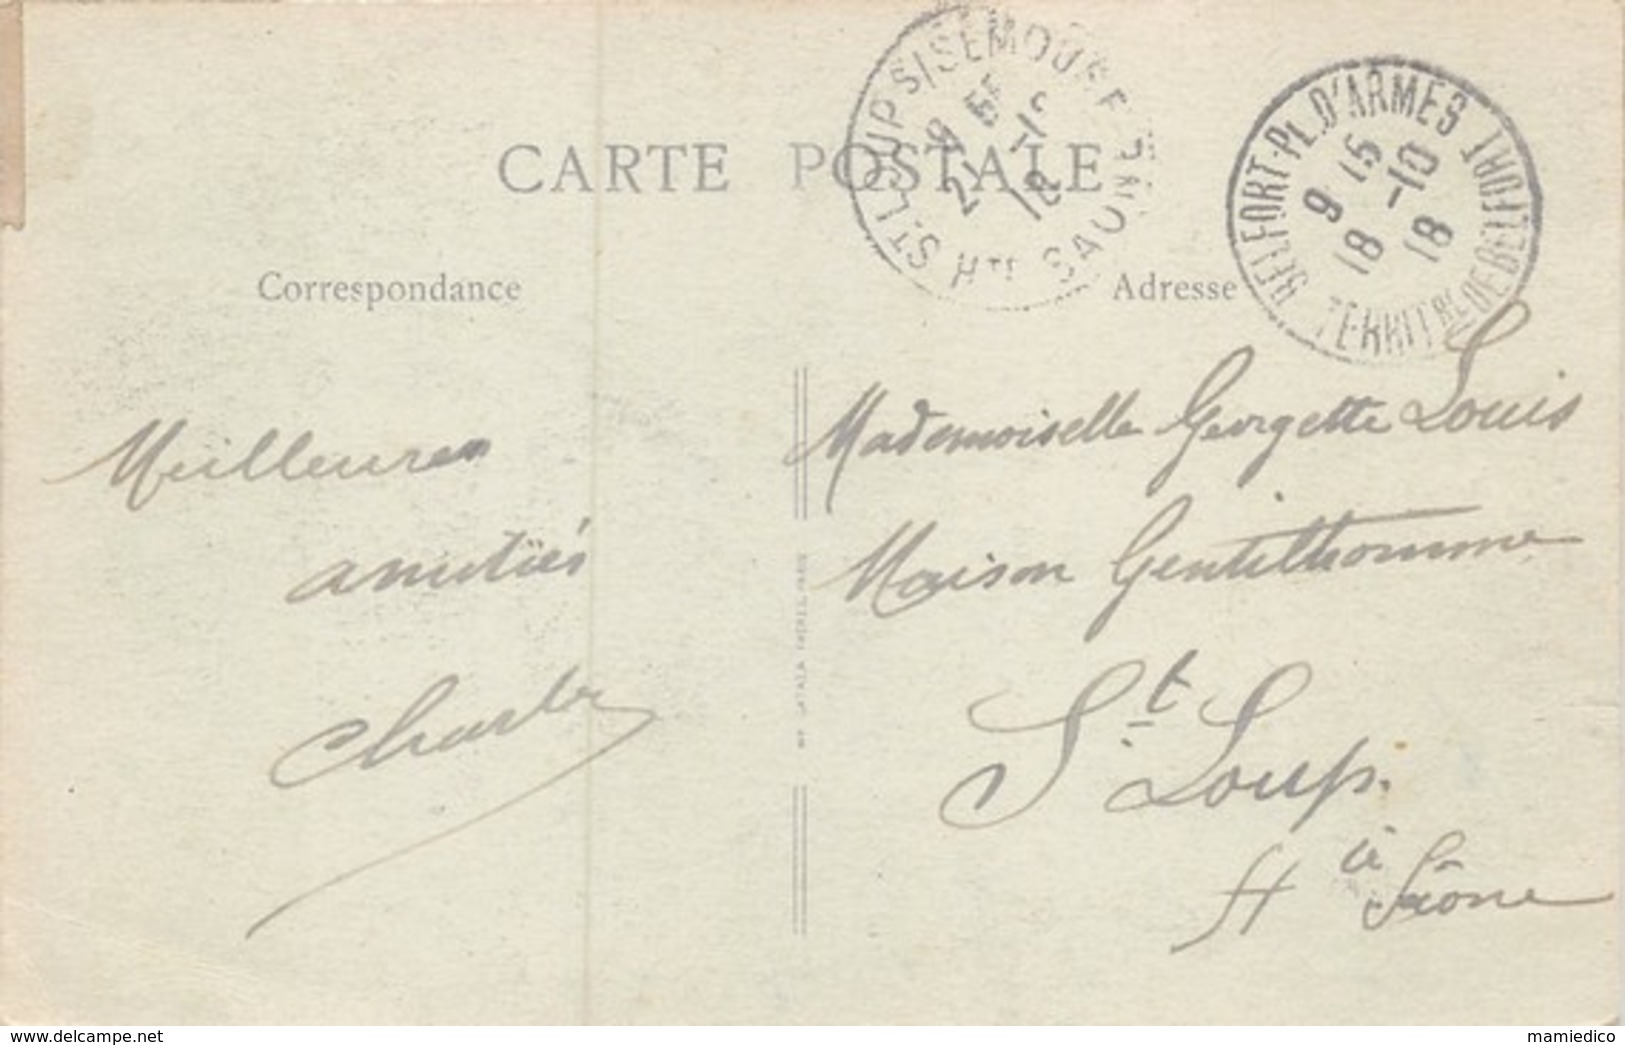 CARTE POSTALE
ST. LOUP S/SEMOUSE
HTE SAONE
BELFORT-PL. D'ARMES
9 15
18 -10
18
TERRITRE DE BELFORT
Correspondance
Adresse
Meilleures
amitiés
Charles
Mademoiselle Georgette Louis
Maison Gentilhomme
St Loup.
Hte Saône
www.delcampe.net
mamiedico